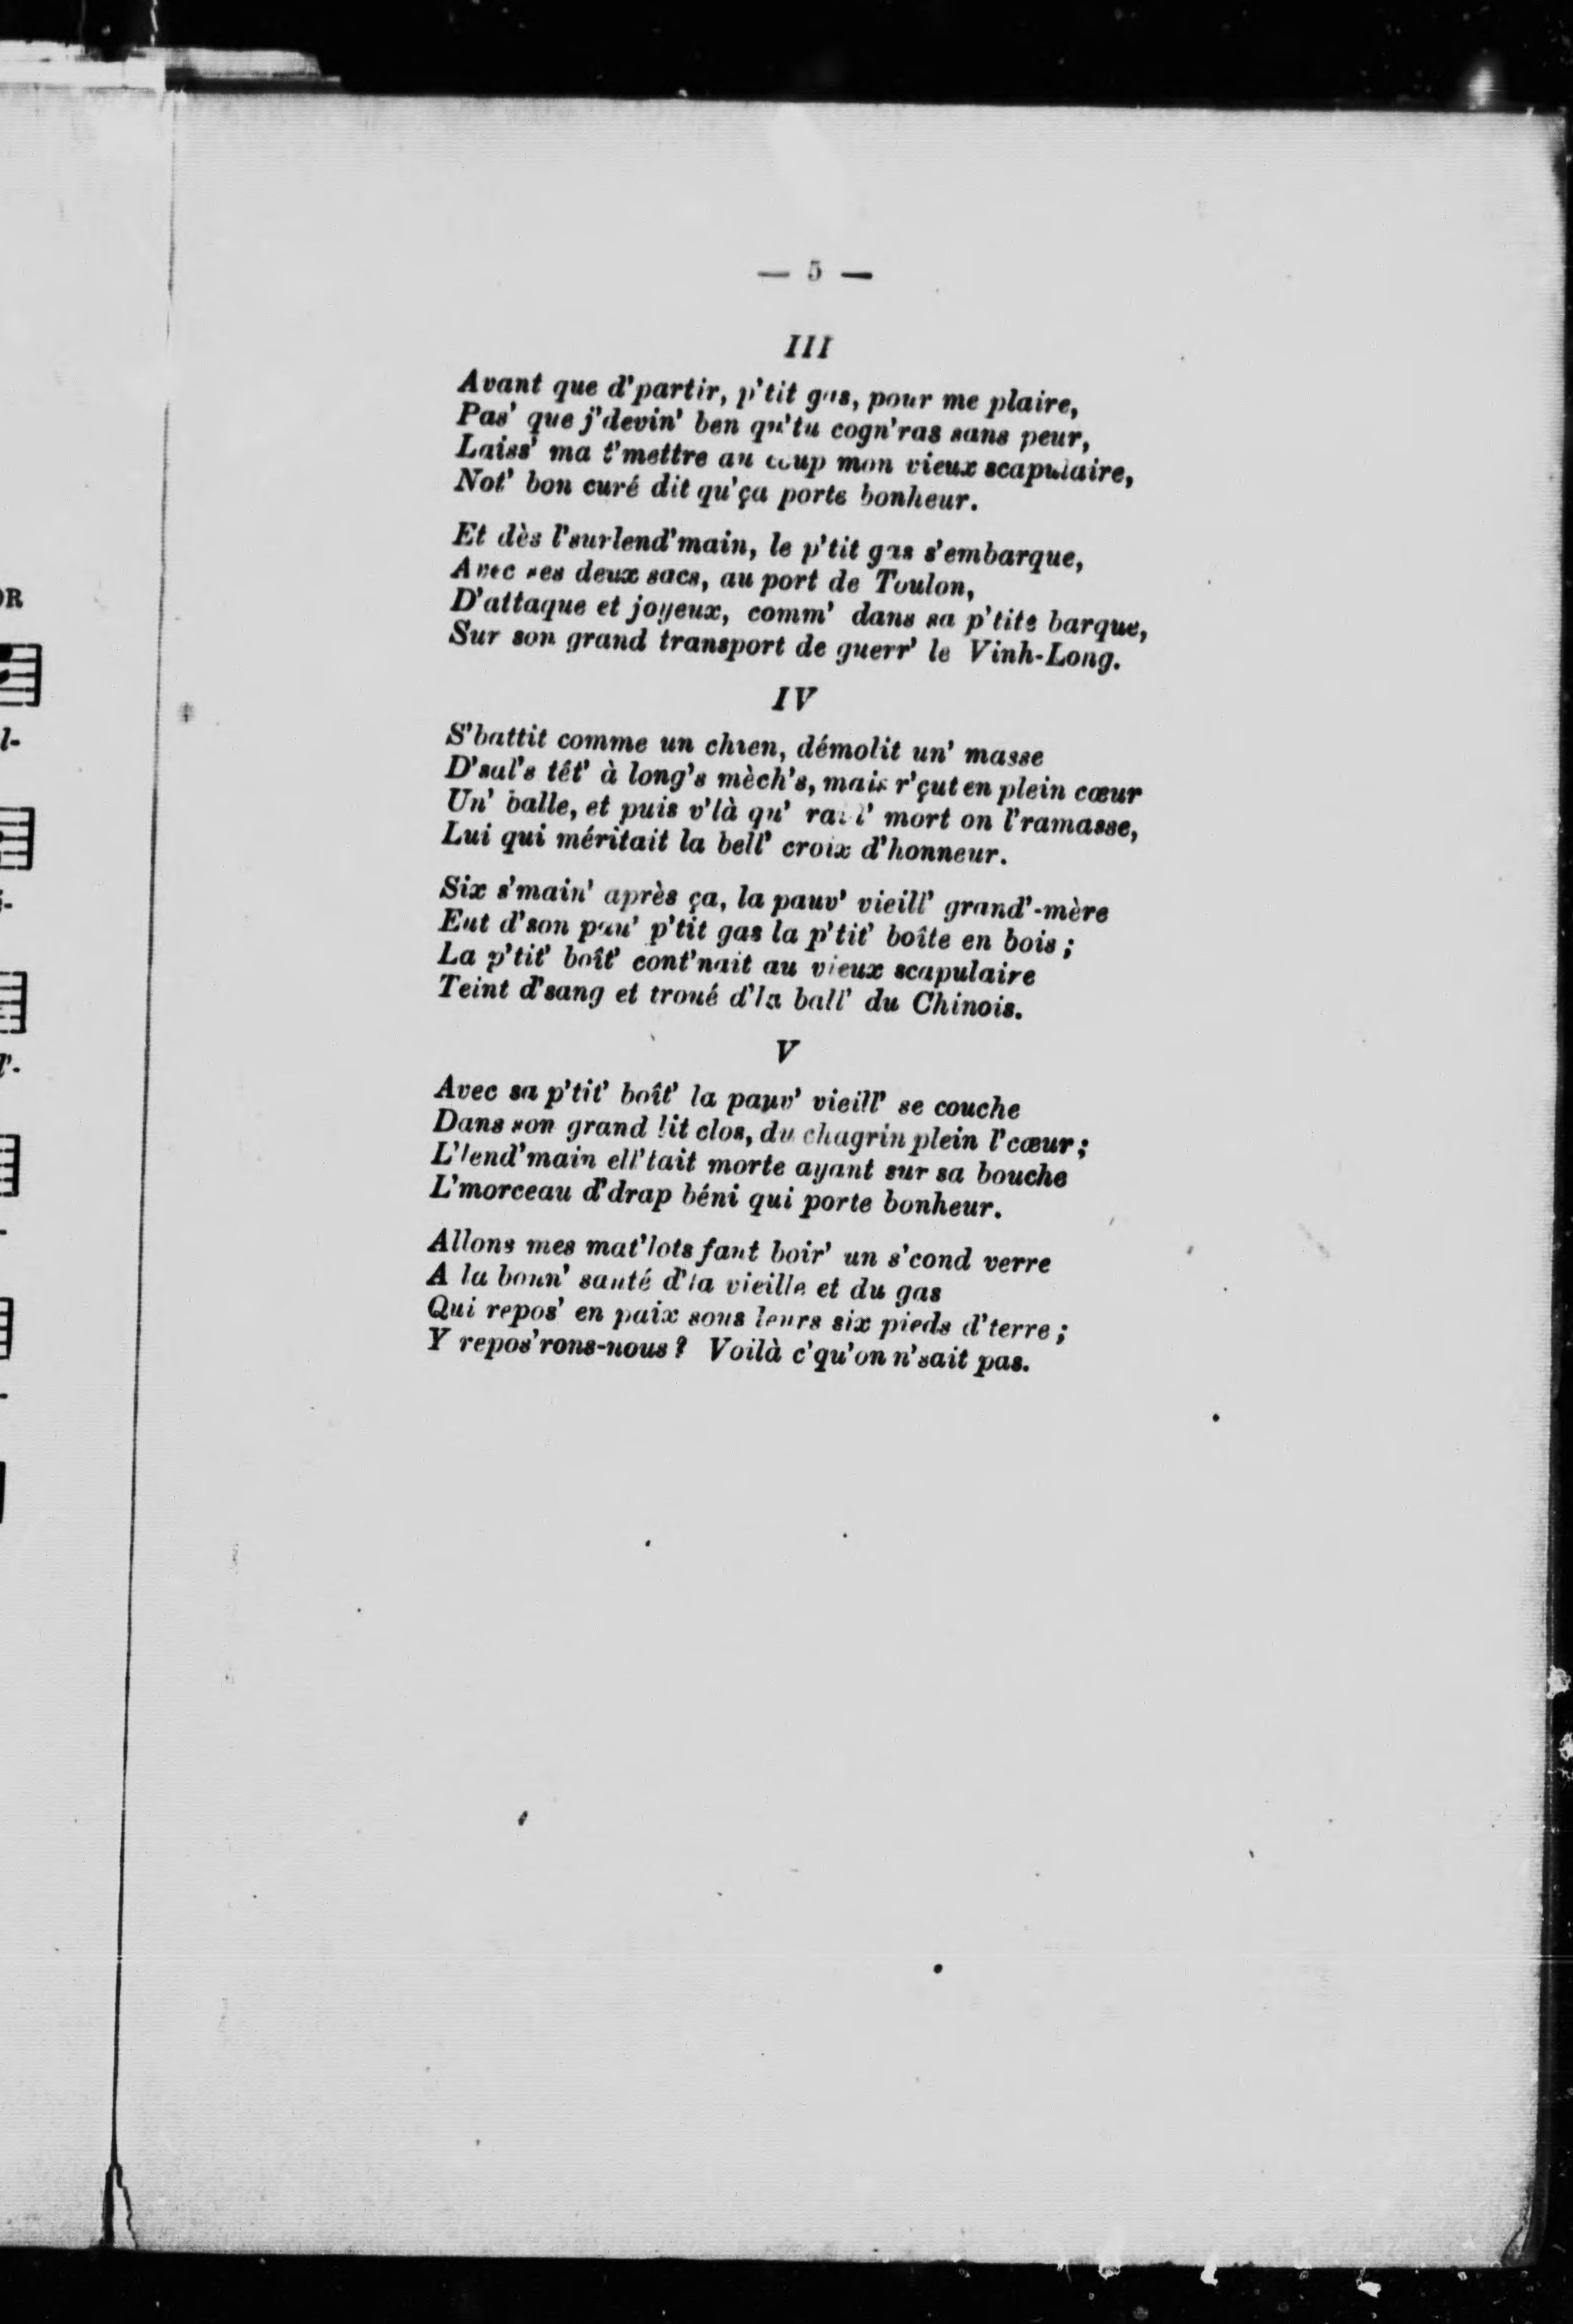 — 5 —
III
Avant que d'partir, p'tit gas, pour me plaire,
Pas' que j'devin' ben qu'tu cogn'ras sans peur,
Laiss' ma t'mettre au coup mon vieux scapulaire,
Not' bon curé dit qu'ça porte bonheur.
Et dès l'surlend'main, le p'tit gas s'embarque,
Avec ses deux sacs, au port de Toulon,
D'attaque et joyeux, comm' dans sa p'tite barque,
Sur son grand transport de guerr' le Vinh-Long.
IV
S'battit comme un chien, démolit un' masse
D'sal's têt' à long's mèch's, mais r'çut en plein cœur
Un' balle, et puis v'là qu' mort on l'ramasse,
Lui qui méritait la bell' croix d'honneur.
Six s'main' après ça, la pauv' vieill' grand'-mère
Eut d'son pau' p'tit gas la p'tit' boîte en bois ;
La p'tit' boît' cont'nait au vieux scapulaire
Teint d'sang et troué d'la ball' du Chinois.
V
Avec sa p'tit' boît' la pauv' vieill' se couche
Dans son grand lit clos, du chagrin plein l'cœur ;
L'lend'main ell'tait morte ayant sur sa bouche
L'morceau d'drap béni qui porte bonheur.
Allons mes mat'lots faut boir' un s'cond verre
A la bonn' santé d'la vieille et du gas
Qui repos' en paix sous leurs six pieds d'terre ;
Y repos'rons-nous ? Voilà c'qu'on n'sait pas.
OR
l-
l'-